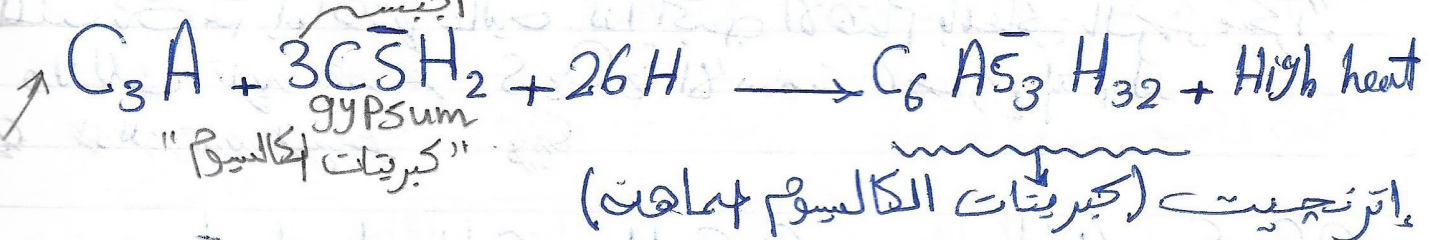 الجبس
C₃A + 3CS̄H₂ + 26H ⟶ C₆AS̄₃H₃₂ + High heat
gypsum
"كبريتات الكالسيوم"
إترنجيت (كبريتات الكالسيوم المماهة)